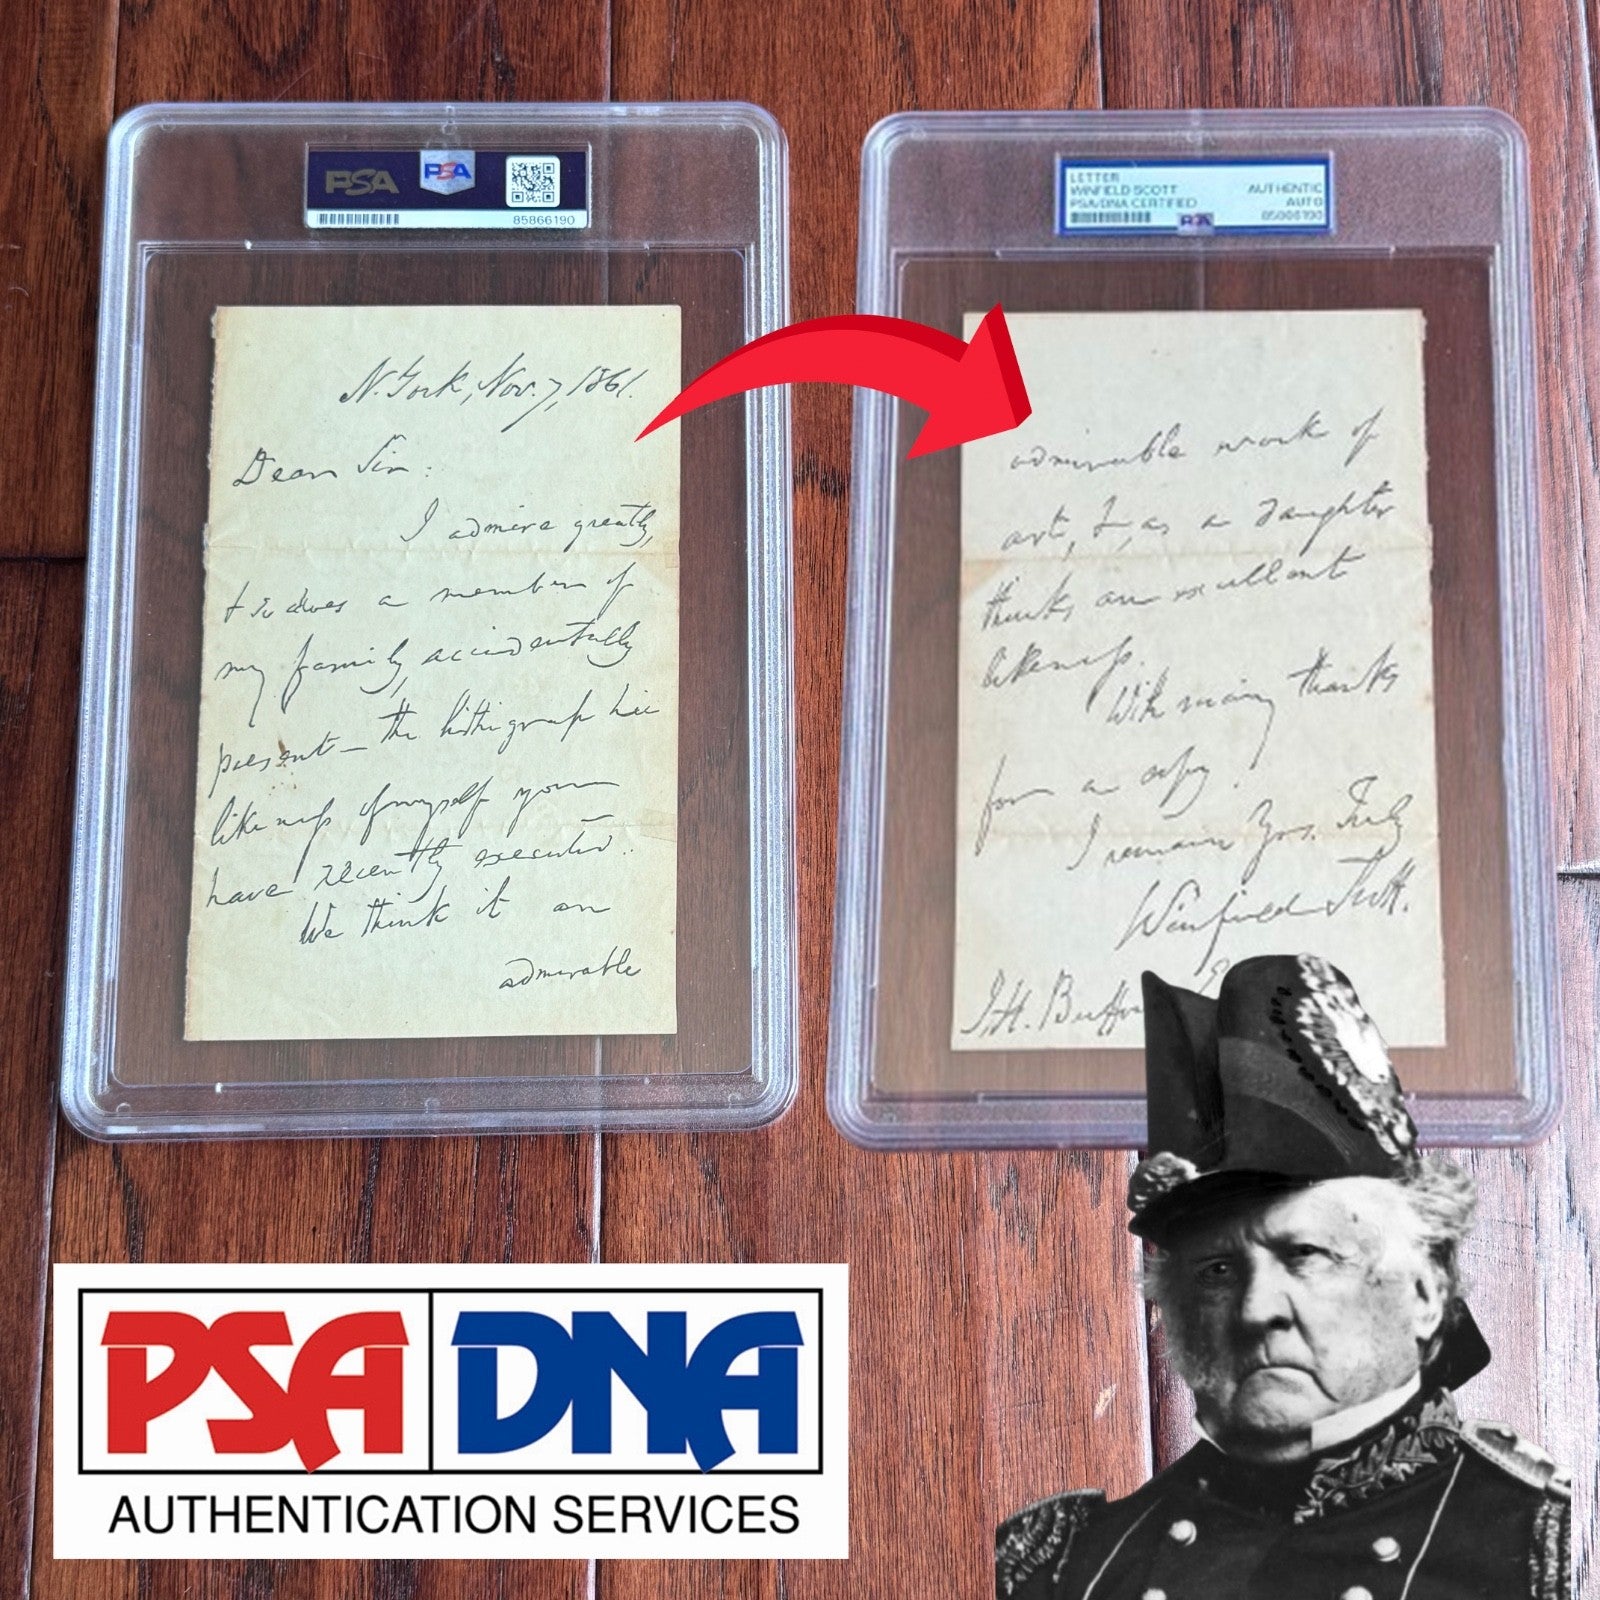 PSA PSA
85866190
LETTER
WINFIELD SCOTT AUTHENTIC
PSA/DNA CERTIFIED AUTO
PSA 85866190
N. York, Nov. 7, 1861.
Dear Sir:
I admire greatly,
& so does a member of
my family, accidentally
present — the lithograph
likeness of myself you
have recently executed.
We think it an
admirable
admirable work of
art, &, as a daughter
thinks an excellent
likeness.
With many thanks
for a copy,
I remain Yrs. Truly
Winfield Scott.
J.H. Buffor
PSA DNA
AUTHENTICATION SERVICES